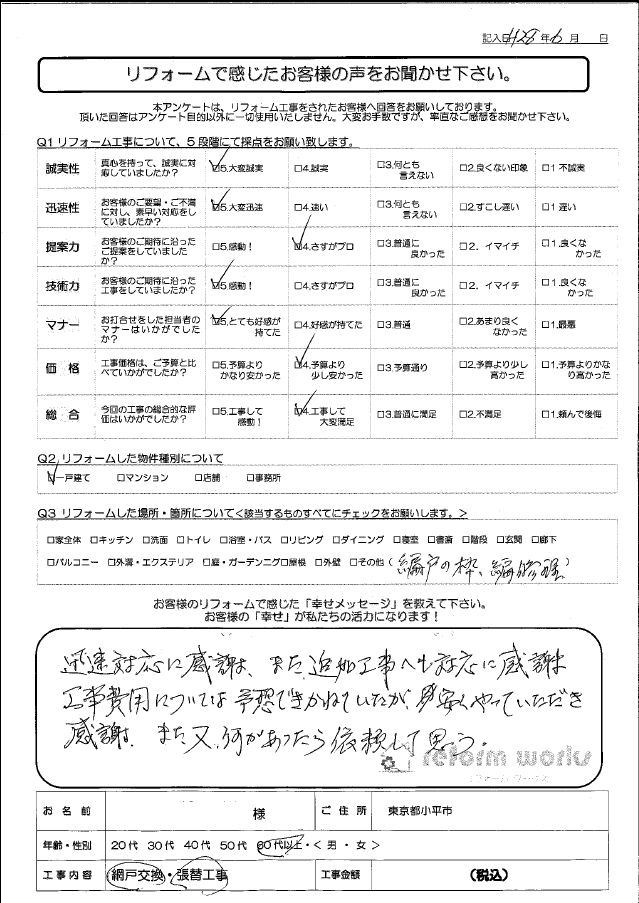 記入日 H28年 6月 日
リフォームで感じたお客様の声をお聞かせ下さい。
本アンケートは、リフォーム工事をされたお客様へ回答をお願いしております。
頂いた回答はアンケート目的以外に一切使用いたしません。大変お手数ですが、率直なご感想をお聞かせ下さい。
Q1 リフォーム工事について、5段階にて採点をお願い致します。
誠実性 真心を持って、誠実に対応していましたか？ □5.大変誠実 □4.誠実 □3.何とも言えない □2.良くない印象 □1 不誠実
迅速性 お客様のご要望・ご不満に対し、素早い対応をしていましたか？ □5.大変迅速 □4.速い □3.何とも言えない □2.すこし遅い □1 遅い
提案力 お客様のご期待に沿ったご提案をしていましたか？ □5.感動！ □4.さすがプロ □3.普通に良かった □2. イマイチ □1.良くなかった
技術力 お客様のご期待に沿った工事をしていましたか？ □5.感動！ □4.さすがプロ □3.普通に良かった □2. イマイチ □1.良くなかった
マナー お打合せをした担当者のマナーはいかがでしたか？ □5.とても好感が持てた □4.好感が持てた □3.普通 □2.あまり良くなかった □1.最悪
価格 工事価格は、ご予算と比べていかがでしたか？ □5.予算よりかなり安かった □4.予算より少し安かった □3.予算通り □2.予算より少し高かった □1.予算よりかなり高かった
総合 今回の工事の総合的な評価はいかがでしたか？ □5.工事して感動！ □4.工事して大変満足 □3.普通に満足 □2.不満足 □1.頼んで後悔
Q2 リフォームした物件種別について
□一戸建て □マンション □店舗 □事務所
Q3 リフォームした場所・箇所について<該当するものすべてにチェックをお願いします。>
□家全体 □キッチン □洗面 □トイレ □浴室・バス □リビング □ダイニング □寝室 □書斎 □階段 □玄関 □廊下
□バルコニー □外溝・エクステリア □庭・ガーデニング □屋根 □外壁 □その他（網戸の枠、網修理）
お客様のリフォームで感じた「幸せメッセージ」を教えて下さい。
お客様の「幸せ」が私たちの活力になります！
迅速対応に感謝、また追加工事へも対応に感謝
工事費用については予想できかねていたが、安くやっていただき
感謝。また、又、何があったら依頼して思う。
reform works
リフォームワークス
お名前 様 ご住所 東京都小平市
年齢・性別 20代 30代 40代 50代 60代以上・<男・女>
工事内容 網戸交換・張替工事 工事金額 (税込)